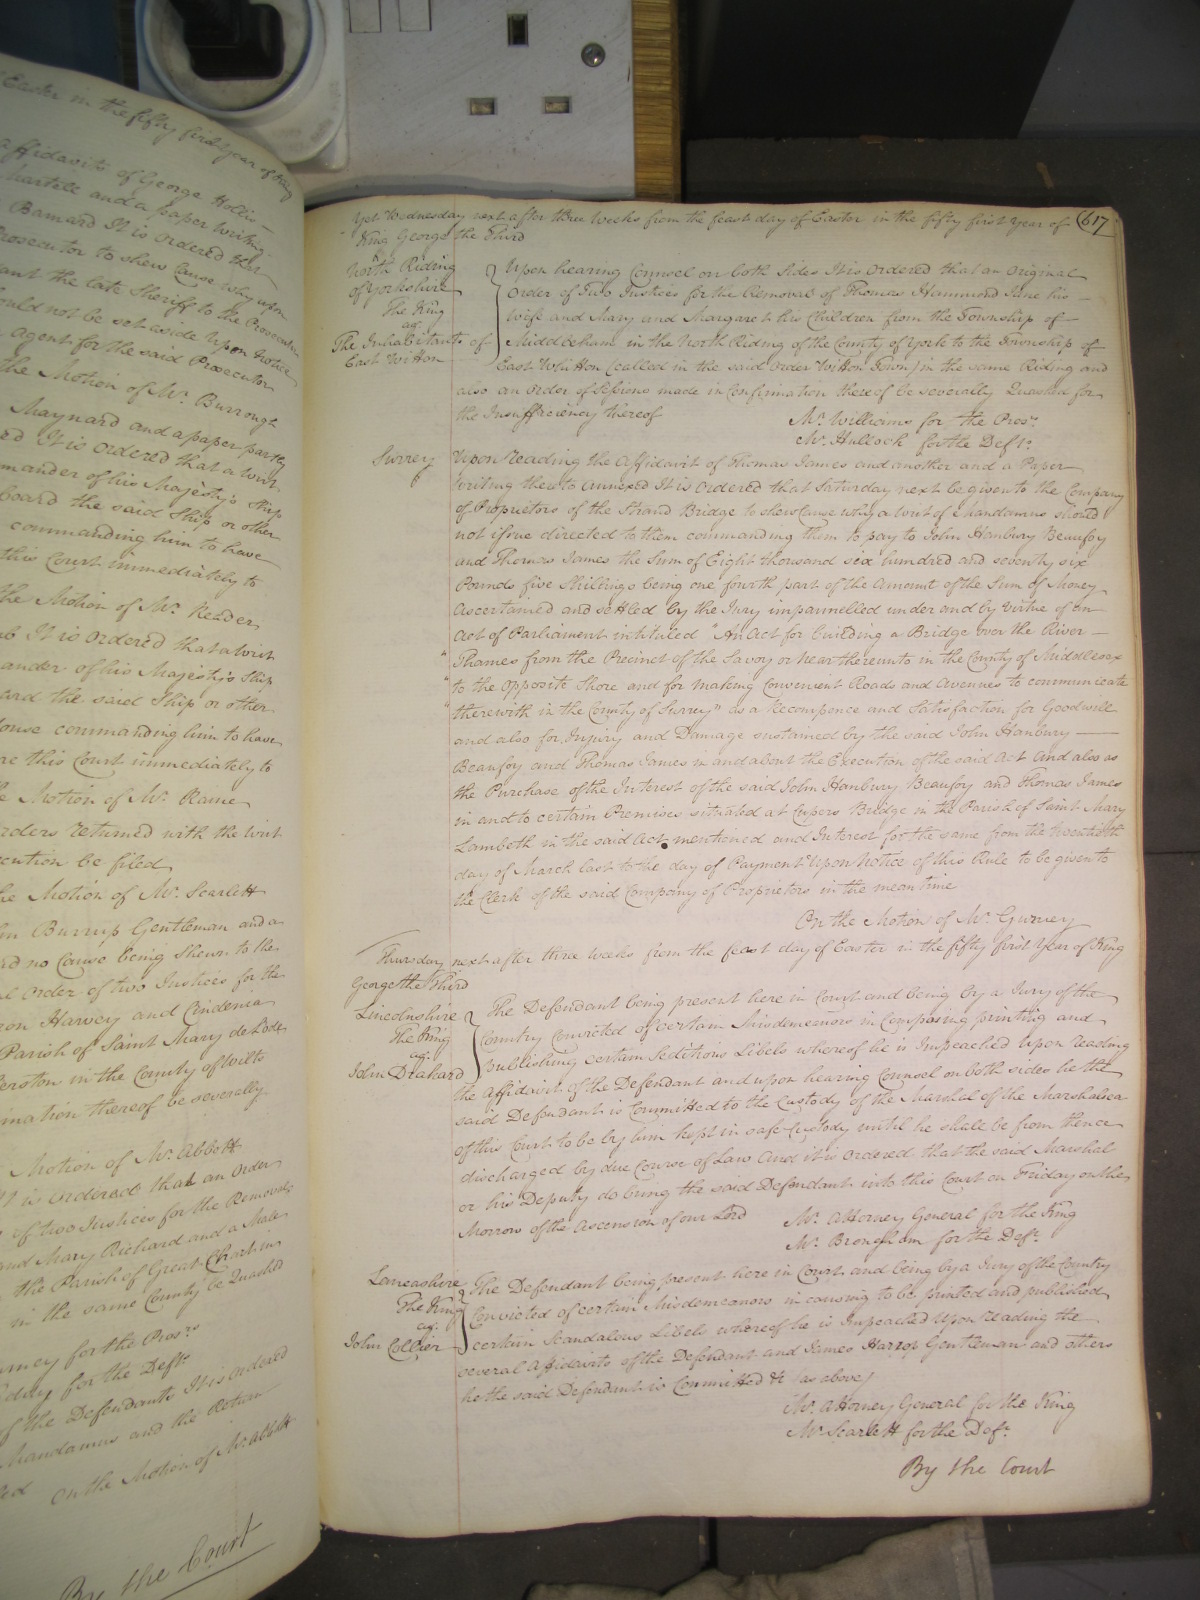 Easter in the fifty first Year of King
affidavits of George Hollis
and a paper writing
Barnard It is Ordered that
Prosecutor to shew Cause why upon
the late Sheriff to the Prosecutor
should not be set aside Upon Notice
Agent for the said Prosecutor
the Motion of Mr. Burrough
Maynard and a paper partly
It is Ordered that a writ
of his Majesty's Ship
board the said Ship or other
commanding him to have
this Court immediately to
the Motion of Mr. Reader
It is Ordered that a writ
of his Majesty's Ship
the said Ship or other
commanding him to have
this Court immediately to
Motion of Mr. Raine
Orders returned with the writ
be filed
the Motion of Mr. Scarlett
Burrup Gentleman and a
no Cause being Shewn to the
Order of two Justices for the
Harvey and
Parish of Saint Mary
in the County of Wilts
thereof be severally
Motion of Mr. Abbott
It is Ordered that an Order
of two Justices for the Removal
and Mary Richard and a Male
the Parish of Great
in the same County be Quashed
for the Prosr.
for the Deft.
of the Defendants It is Ordered
Mandamus and the Return
On the Motion of Mr. Abbott
By the Court
Yet Wednesday next after three Weeks from the feast day of Easter in the fifty first Year of 617
King George the Third
North Riding
of Yorkshire
The King
agt.
The Inhabitants of
East Witton
Upon hearing Counsel on both Sides It is Ordered that an Original
Order of Two Justices for the Removal of Thomas Hammond Jane his
Wife and Mary and Margaret his Children from the Township of
Middleham in the North Riding of the County of York to the Township of
East Whitton (called in the said Order Witton Town) in the same Riding and
also an Order of Sessions made in Confirmation thereof be severally Quashed for
the Insufficiency thereof
Mr. Williams for the Prosr.
Mr. Hullock for the Deft.
Surrey
Upon reading the Affidavit of Thomas James and another and a Paper
Writing thereto annexed It is Ordered that Saturday next be given to the Company
of Proprietors of the Strand Bridge to shew Cause why a writ of Mandamus should
not issue directed to them commanding them to pay to John Hanbury Beaufoy
and Thomas James the Sum of Eight thousand six hundred and seventy six
Pounds five Shillings being one fourth part of the Amount of the Sum of Money
Ascertained and settled by the Jury impannelled under and by virtue of an
Act of Parliament intituled "An Act for building a Bridge over the River
" Thames from the Precinct of the Savoy or near thereunto in the County of Middlesex
" to the opposite Shore and for making Convenient Roads and Avenues to communicate
" therewith in the County of Surrey" as a Recompence and Satisfaction for Goodwill
and also for Injury and Damage sustained by the said John Hanbury
Beaufoy and Thomas James in and about the Execution of the said Act And also as
the Purchase of the Interest of the said John Hanbury Beaufoy and Thomas James
in and to certain Premises situated at Cupers Bridge in the Parish of Saint Mary
Lambeth in the said Act mentioned and Interest for the same from the twentieth
day of March last to the day of Payment Upon Notice of this Rule to be given to
the Clerk of the said Company of Proprietors in the mean time
On the Motion of Mr. Gurney
Thursday next after three weeks from the feast day of Easter in the fifty first Year of King
George the Third
Lincolnshire
The King
agt.
John Drakard
The Defendant being present here in Court and being by a Jury of the
Country Convicted of certain Misdemeanors in Composing printing and
Publishing certain Seditious Libels whereof he is Impeached Upon reading
the Affidavit of the Defendant and upon hearing Counsel on both sides he the
said Defendant is Committed to the Custody of the Marshal of the Marshalsea
of this Court to be by him kept in safe Custody until he shall be from thence
discharged by due Course of Law And it is Ordered that the said Marshal
or his Deputy do bring the said Defendant into this Court on Friday on the
Morrow of the Ascension of our Lord
Mr. Attorney General for the King
Mr. Brougham for the Deft.
Lancashire
The King
agt.
John Collier
The Defendant being present here in Court and being by a Jury of the Country
Convicted of certain Misdemeanors in causing to be printed and published
certain Scandalous Libels whereof he is Impeached Upon reading the
several Affidavits of the Defendant and James Harrop Gentleman and others
he the said Defendant is Committed &c (as above)
Mr. Attorney General for the King
Mr. Scarlett for the Deft.
By the Court